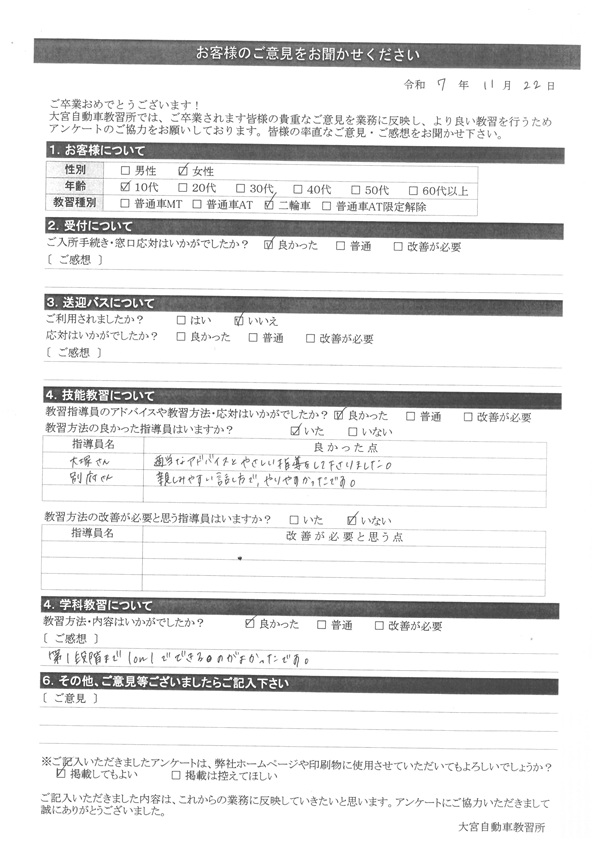 お客様のご意見をお聞かせください
令和 7 年 11 月 22 日
ご卒業おめでとうございます！
大宮自動車教習所では、ご卒業されます皆様の貴重なご意見を業務に反映し、より良い教習を行うため
アンケートのご協力をお願いしております。皆様の率直なご意見・ご感想をお聞かせ下さい。
1. お客様について
性別 □ 男性 ☑ 女性
年齢 ☑ 10代 □ 20代 □ 30代 □ 40代 □ 50代 □ 60代以上
教習種別 □ 普通車MT □ 普通車AT ☑ 二輪車 □ 普通車AT限定解除
2. 受付について
ご入所手続き・窓口応対はいかがでしたか？ ☑ 良かった □ 普通 □ 改善が必要
［ ご感想 ］
3. 送迎バスについて
ご利用されましたか？ □ はい ☑ いいえ
応対はいかがでしたか？ □ 良かった □ 普通 □ 改善が必要
［ ご感想 ］
4. 技能教習について
教習指導員のアドバイスや教習方法・応対はいかがでしたか？ ☑ 良かった □ 普通 □ 改善が必要
教習方法の良かった指導員はいますか？ ☑ いた □ いない
指導員名 良かった点
大塚さん 適当なアドバイスとやさしい指導をして下さりました。
別府さん 親しみやすい話し方で、やりやすかったです。
教習方法の改善が必要と思う指導員はいますか？ □ いた ☑ いない
指導員名 改善が必要と思う点
4. 学科教習について
教習方法・内容はいかがでしたか？ ☑ 良かった □ 普通 □ 改善が必要
［ ご感想 ］
第1段階まで1on1でできるのがよかったです。
6. その他、ご意見等ございましたらご記入下さい
［ ご意見 ］
※ご記入いただきましたアンケートは、弊社ホームページや印刷物に使用させていただいてもよろしいでしょうか？
☑ 掲載してもよい □ 掲載は控えてほしい
ご記入いただきました内容は、これからの業務に反映していきたいと思います。アンケートにご協力いただきまして
誠にありがとうございました。
大宮自動車教習所